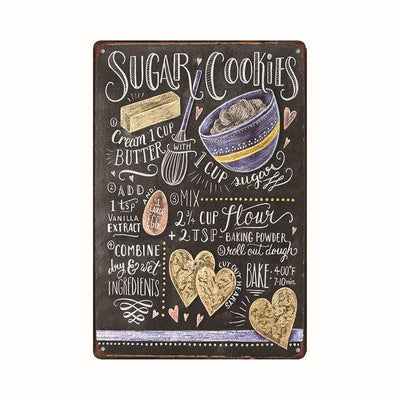 SUGAR COOKIES
① Cream 1 CUP
BUTTER WITH
1 CUP sugar
② ADD
1 tsp
VANILLA
EXTRACT
AND
1 LARGE EGG
③ MIX
2 ¾ CUP Flour
+ 2 TSP BAKING POWDER
④ COMBINE
dry & wet
INGREDIENTS
⑤ roll out dough
CUT OUT HEARTS
BAKE 400°F
7-10 min.